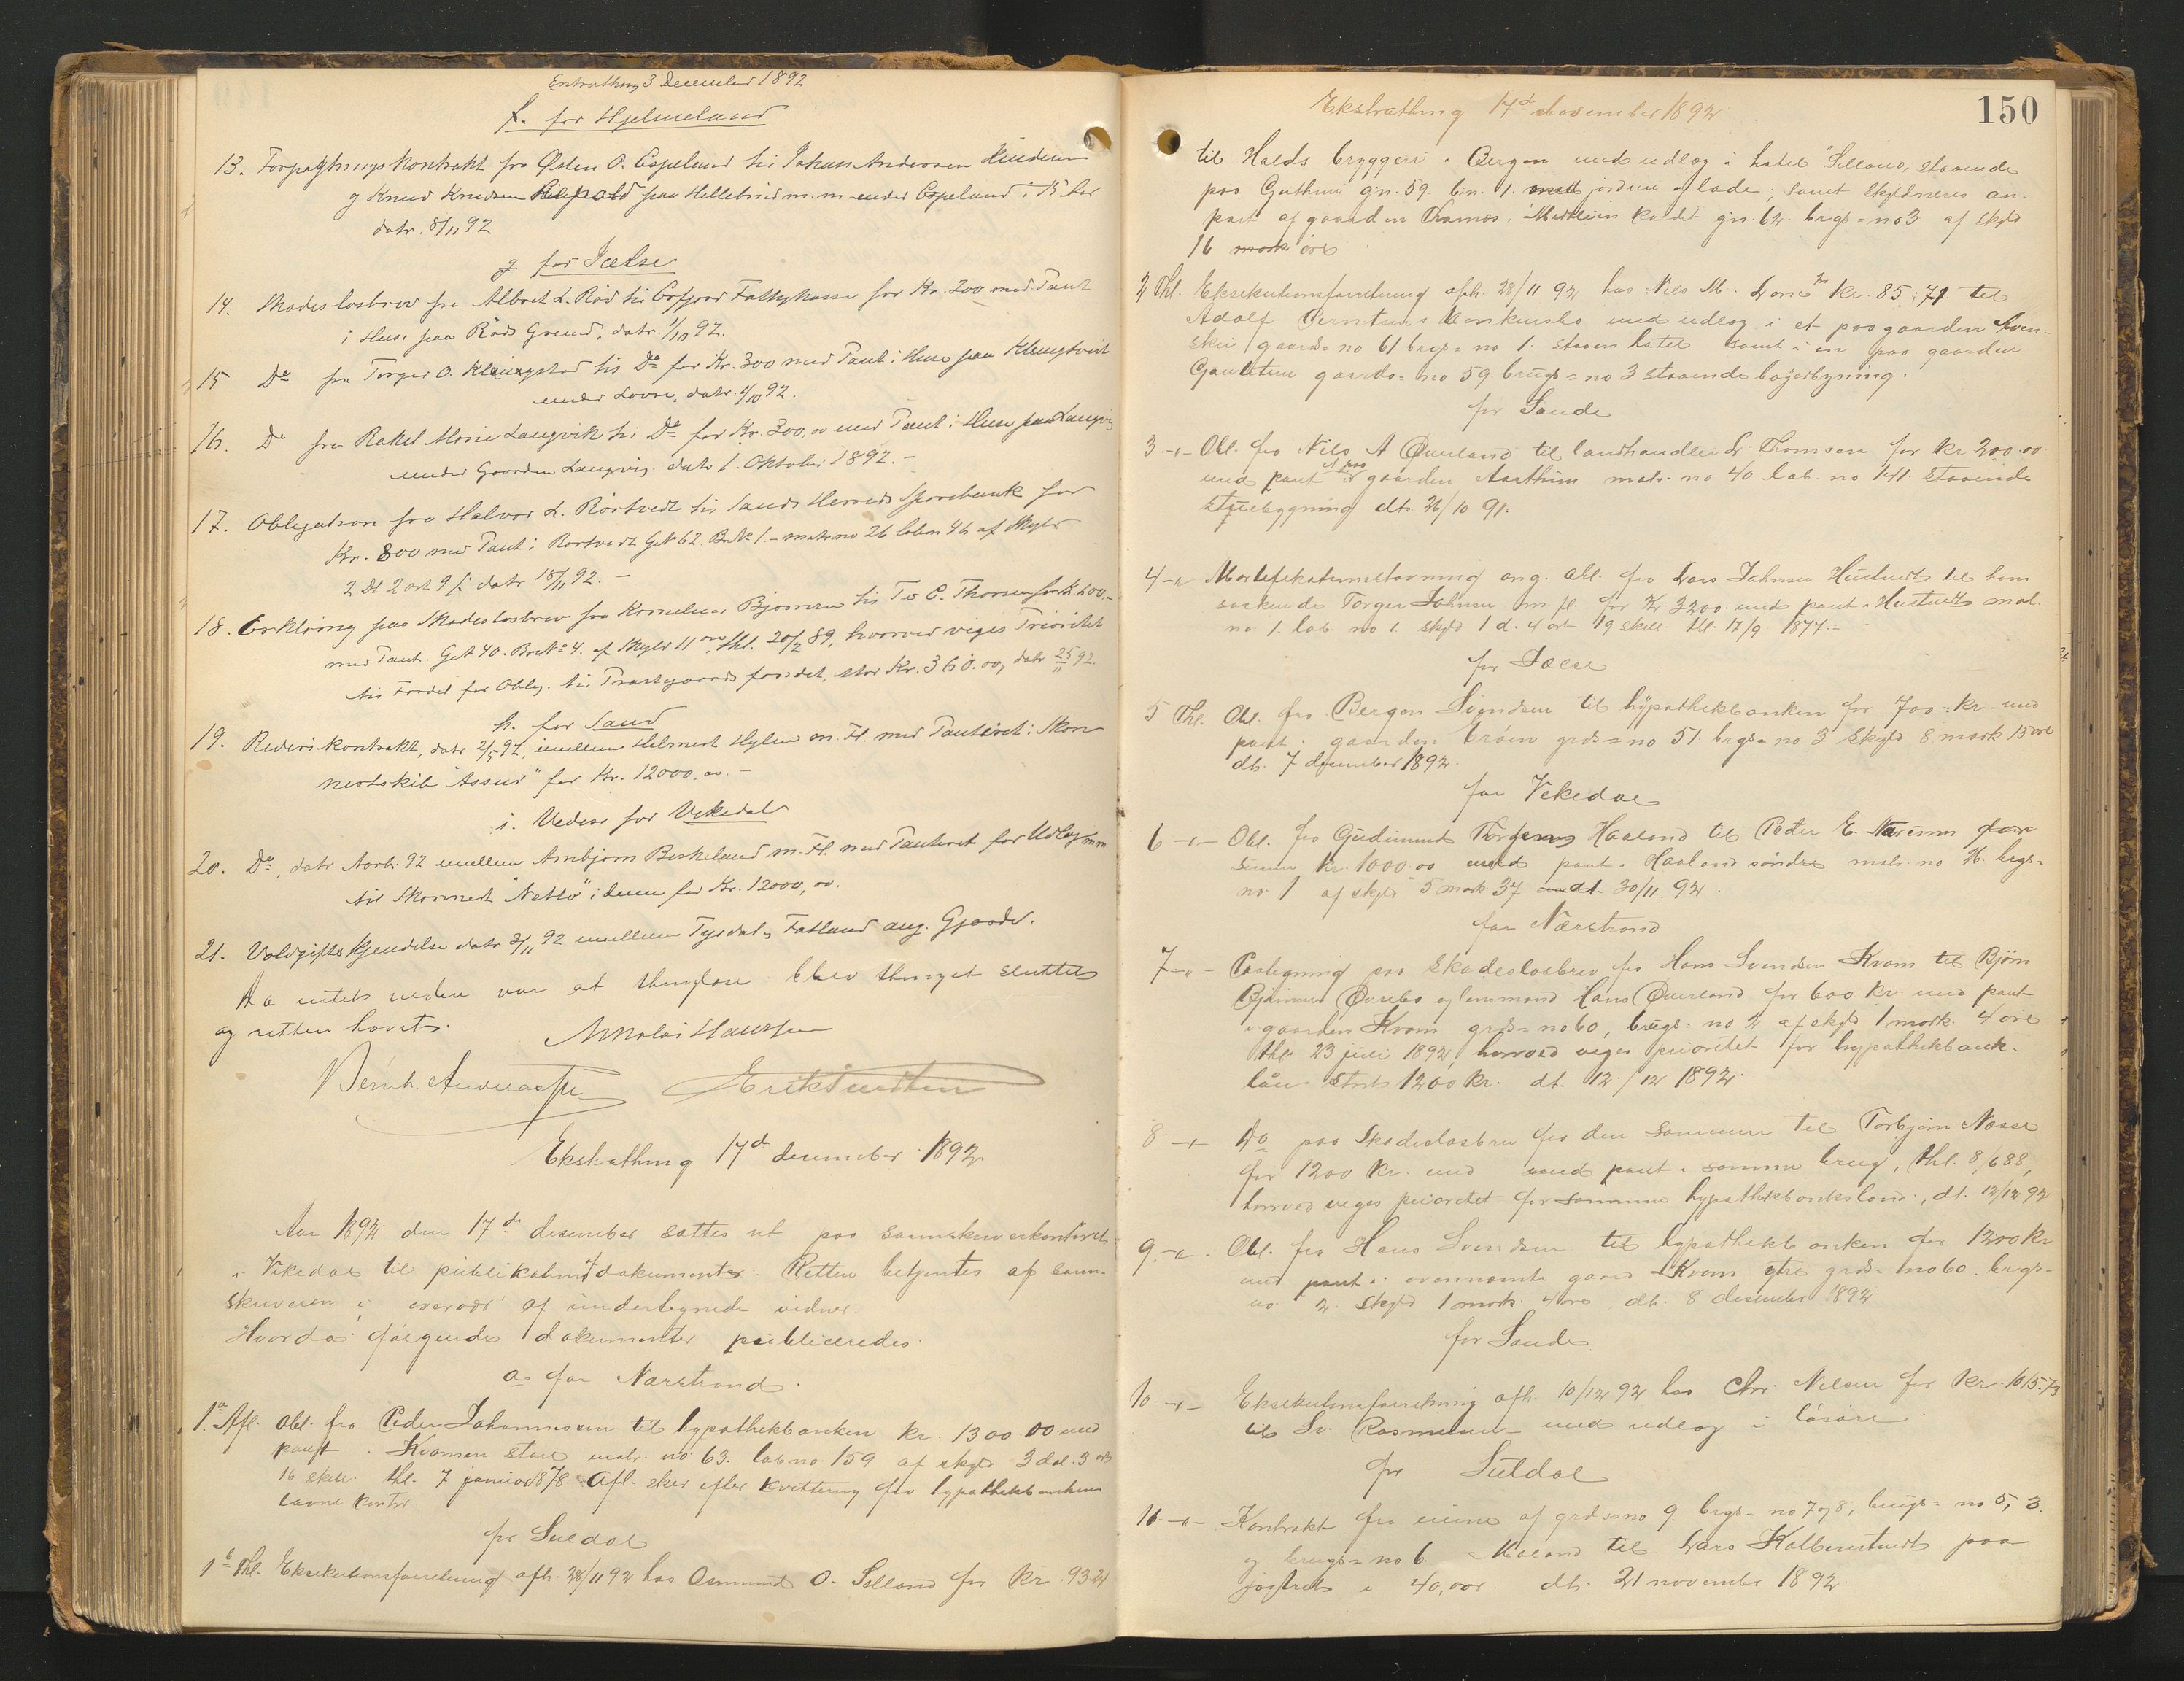 Extrathing 3 December 1892
f. for Hjelmeland
13. Forpagtningskontrakt fra Østen O. Espeland til Johan Andersen
og Knud Knudsen paa Hellebrud m.m under Espeland i 15 Aar
datr. 8/11 92
g for Jælse
14. Skadesløsbrev fra Albret L. Rød til Erfjord Fattigkasse for Kr. 200 med Pant
i Huse paa Røds Grund, datr. 1/10 92.
15 Do fra Torger O. Klungstad til Do for Kr. 300 med Pant i Huse paa Klungtveit
under Lovra, datr. 4/10 92.
16. Do fra Rakel Marie Langvik til Do for Kr. 300,00 med Pant i Huse paa Langvig
under Gaarden Langvig datr 1. Oktober 1892. –
17. Obligation fra Halvor L. Rørtvedt til Sands Herreds Sparebank for
Kr. 800 med Pant i Rørtvedt G.No 62. B.No 1. – matr no 26 løbno 46 af Skyld
2 Dl 2 ort 9 ß datr 18/11 92. –
18. Erklæring paa Skadesløsbrev fra Kornelius Bjørnsen til T. C. Thorsen for K. 600,–
med Pant. G.No 40. Br.No 4. af Skyld 11 øre, thl. 20/2 89, hvorved viges Prioritet
til Fordel for Oblig. til Præstegaards fondet, stor Kr. 360.00, datr 25/11 92.
h. for Sand
19. Rederikontrakt, datr 2/5 92, imellem Helmert Hylen m. Fl. med Panteret i Skon
nertskib "Assur" for Kr. 12000.00. –
i. Videre for Vikedal
20. Do, datr Aarh. 92 imellem Arnbjørn Birkeland m. Fl. med Panteret for Udlæg mm
til Skonnert "Netto" i denne for Kr. 12000,00.
21. Voldgiftskjendelse datr 3/11 92 imellem Tysdal, Fatland ang. Gjærde.
Da intet videre var at thinglæse blev thinget sluttet
og retten hævet.
Nikolai Hansen
Bernh. Andreassen Erik Knudsen
Ekstrathing 17de december 1892
Aar 1892 den 17de desember sattes ret paa sorenskriverkontoret
i Vikedal til publikation af dokumenter. Retten betjentes af soren-
skriveren i overvær af undertegnede vidner.
Hvorda følgende dokumenter publiceredes
a for Nærstrand.
1.a Afl. Obl. fra Peder Johannessen til hypothekbanken kr. 1300.00 med
pant i Kvamen store matr. no 63. løbno 159 af skyld 3 dal. 3 ort
16 skill. thl. 7 januar 1878. Afl. sker efter kvittering fra hypothekbankens
laane kontor
for Suldal
1b Thl. Eksekutionsforretning afh. 28/11 92 hos Osmund O. Selland for kr. 93.24
Ekstrathing 17de desember 1892
150
til Halds bryggeri i Bergen med udlæg i hotel Selland, staaende
paa Guthun gn. 59. bn. 1. med jorden og lade, samt skyldneres an-
part af gaarden kaldt gn. 62. brgs=no 3 af skyld
16 øre
2 Thl. Eksekutionsforretning afh. 28/11 92 hos Nils M. for kr. 85:71 til
Adolf Berntsens konkursbo med udlæg i et paa gaarden
gaards= no 61 brgs= no 1. staaen hotel samt i en paa gaarden
gaards= no 59. brugs= no 3 staaende bygning.
for Sande
3 –"– Obl. fra Nils A Øverland til landhandler Thomsen for kr 200.00
med pant i et paa gaarden Aarthun matr. no 40 løb. no 141. staaende
stuebygning dt. 26/10 91.
4 –"– Mortifikationsstævning ang. obl. fra Lars Johnsen Hustveit til hans
søskende Torger Johnsen m. fl. for kr 3200 med pant i Hustveit mat.
no 1. løb no 1. skyld 1 d. 4 ort 19 skill. thl. 17/9 1877.–
for Jælse
5 Thl. Obl. fra Bergon Svendsen til hypothekbanken for 700= kr. med
pant i gaarden brøen grds= no 51. brgs= no 2 skyld 8 mark 15 øre
dt. 7 desember 1892.
for Vikedal
6 –"– Obl. fra Gudmund Haaland til Peder E. for
summa kr. 1000.00 med pant i Haaland søndre matr. no brgs=
no 1 af skyld 5 mark 37 dt. 30/11 92.
for Nærstrand
7 –"– Paategning paa skadesløsbrev fra Hans Svendsen Kvam til Bjørn
Bjørnsen Øvrebø og lensmand Hans Øverland for 600 kr. med pant
i gaarden Kvam grds= no 60, brugs= no 2 af skyld 1 mark 4 øre
thl. 23 juli 1892, hvorved viges prioritet for hypothekbank-
laan stort 1200 kr. dt. 12/12 1892.
8 –"– Do paa skadesløsbrev fra den samme til Torbjørn Næsse
for 1200 kr. med pant i samme brug, thl. 8/6 88,
hvorved viges prioritet for samme hypothekbankslaan, dt. 12/12 92
9. –"– Obl. fra Hans Svendsen til hypothekbanken for 1200 kr
med pant i ovennævnte gaard Kvam ytre grds= no 60. brgs=
no 2. skyld 1 mark 4 øre dt. 8 desember 1892
for Sande
10. –"– Eksekutionsforretning afh. 10/12 92 hos Chr. Nilsen for kr. 1015.73
til Sv. Rasmussen med udlæg i løsøre
for Suldal
11 –"– Kontrakt fra eierne af grds=no 9. brgs= no 7 og 8, brugs= no 5, 3.
og brugs= no 6. Moland til Lars Kolbenstvedt paa
jagtret i 40, aar. dt. 21 november 1892